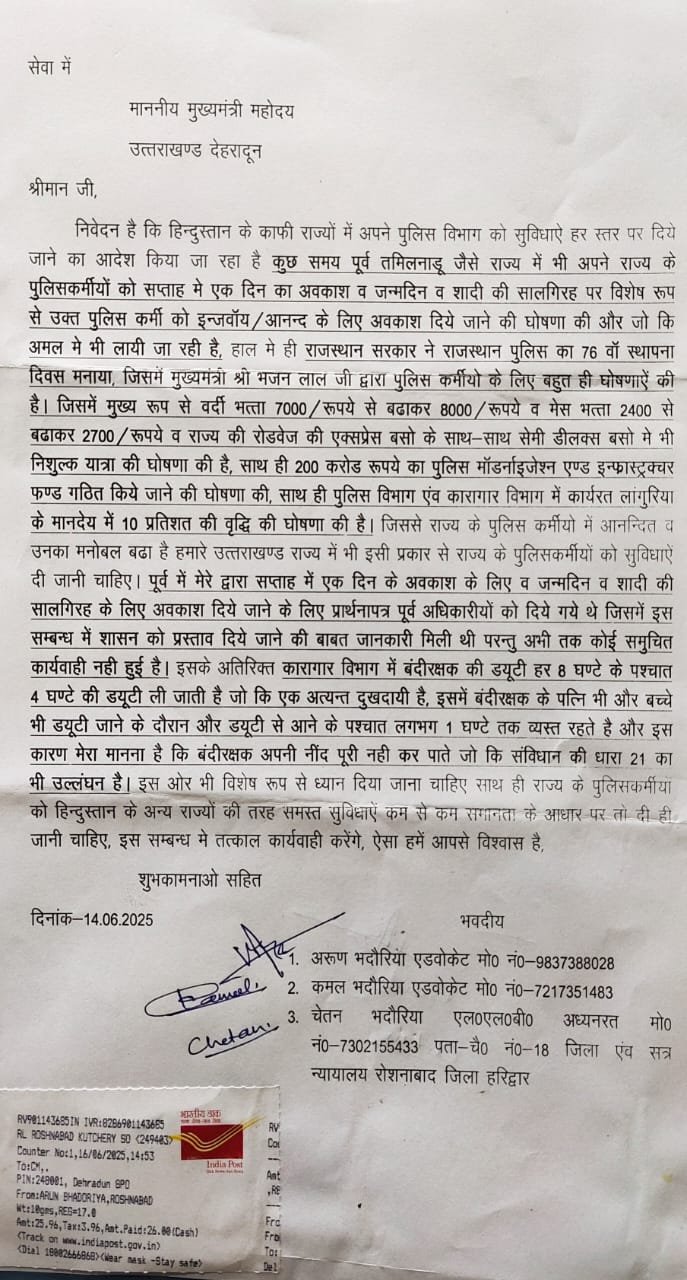 सेवा में
माननीय मुख्यमंत्री महोदय
उत्तराखण्ड देहरादून
श्रीमान जी,
निवेदन है कि हिन्दुस्तान के काफी राज्यों में अपने पुलिस विभाग को सुविधाऐ हर स्तर पर दिये
जाने का आदेश किया जा रहा है कुछ समय पूर्व तमिलनाडू जैसे राज्य में भी अपने राज्य के
पुलिसकर्मीयों को सप्ताह मे एक दिन का अवकाश व जन्मदिन व शादी की सालगिरह पर विशेष रूप
से उक्त पुलिस कर्मी को इन्जवॉय/आनन्द के लिए अवकाश दिये जाने की घोषणा की और जो कि
अमल मे भी लायी जा रही है, हाल मे ही राजस्थान सरकार ने राजस्थान पुलिस का 76 वॉ स्थापना
दिवस मनाया, जिसमें मुख्यमंत्री श्री भजन लाल जी द्वारा पुलिस कर्मीयो के लिए बहुत ही घोषणाऐं की
है। जिसमें मुख्य रूप से वर्दी भत्ता 7000/रूपये से बढाकर 8000/रूपये व मेस भत्ता 2400 से
बढाकर 2700/रूपये व राज्य की रोडवेज की एक्सप्रेस बसो के साथ-साथ सेमी डीलक्स बसो मे भी
निशुल्क यात्रा की घोषणा की है, साथ ही 200 करोड रूपये का पुलिस मॉडर्नाइजेश्न एण्ड इन्फ्रास्ट्रक्चर
फण्ड गठित किये जाने की घोषणा की, साथ ही पुलिस विभाग एंव कारागार विभाग में कार्यरत लांगुरिया
के मानदेय में 10 प्रतिशत की वृद्धि की घोषणा की है। जिससे राज्य के पुलिस कर्मीयो में आनन्दित व
उनका मनोबल बढा है हमारे उत्तराखण्ड राज्य में भी इसी प्रकार से राज्य के पुलिसकर्मीयों को सुविधाऐं
दी जानी चाहिए। पूर्व में मेरे द्वारा सप्ताह में एक दिन के अवकाश के लिए व जन्मदिन व शादी की
सालगिरह के लिए अवकाश दिये जाने के लिए प्रार्थनापत्र पूर्व अधिकारीयों को दिये गये थे जिसमें इस
सम्बन्ध में शासन को प्रस्ताव दिये जाने की बाबत जानकारी मिली थी परन्तु अभी तक कोई समुचित
कार्यवाही नही हुई है। इसके अतिरिक्त कारागार विभाग में बंदीरक्षक की डयूटी हर 8 घण्टे के पश्चात
4 घण्टे की डयूटी ली जाती है जो कि एक अत्यन्त दुखदायी है, इसमें बंदीरक्षक के पत्नि भी और बच्चे
भी डयूटी जाने के दौरान और डयूटी से आने के पश्चात लगभग 1 घण्टे तक व्यस्त रहते है और इस
कारण मेरा मानना है कि बंदीरक्षक अपनी नींद पूरी नही कर पाते जो कि संविधान की धारा 21 का
भी उल्लंघन है। इस ओर भी विशेष रूप से ध्यान दिया जाना चाहिए साथ ही राज्य के पुलिसकर्मीया
को हिन्दुस्तान के अन्य राज्यों की तरह समस्त सुविधाऐं कम से कम समानता के आधार पर तो दी ही
जानी चाहिए, इस सम्बन्ध मे तत्काल कार्यवाही करेंगे, ऐसा हमें आपसे विश्वास है,
शुभकामनाओ सहित
दिनांक-14.06.2025
भवदीय
1. अरूण भदौरिया एडवोकेट मो0 नं0-9837388028
Kamal. 2. कमल भदौरिया एडवोकेट मो0 नं0-7217351483
Chetan. 3. चेतन भदौरिया एल0एल0बी0 अध्यनरत मो0
नं0-7302155433 पता-चै0 नं0-18 जिला एंव सत्र
न्यायालय रोशनाबाद जिला हरिद्वार
भारतीय डाक
India Post
RV901143685IN IVR:8286901143685
RL ROSHNABAD KUTCHERY SO <249403>
Counter No:1,16/06/2025,14:53
To:CM,.
PIN:248001, Dehradun GPO
From:ARUN BHADORIYA,ROSHNABAD
Wt:10gms,REG=17.0
Amt:25.96,Tax:3.96,Amt.Paid:26.00(Cash)
<Track on www.indiapost.gov.in>
<Dial 18002666868><Wear mask -Stay safe>
RV
Amt
Fro
To:
Del